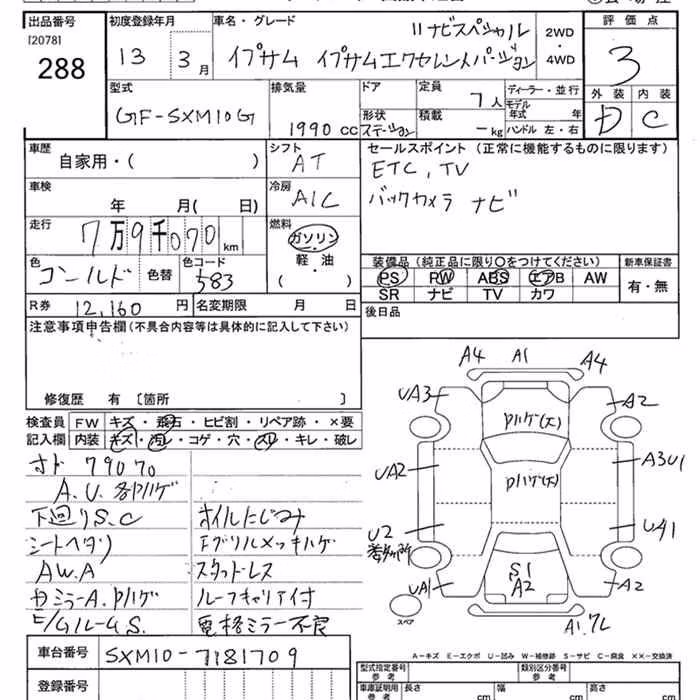 出品番号 初度登録年月 車名・グレード リナビスペシャル 2WD・4WD 評価点
[2078]
288
13 3月 イプサム イプサムエクセレントバージョン
3
型式 排気量 ドア 定員 7人 ディーラー・並行 外装 内装
モデル年式 年
GF-SXM10G 1990cc 形状 ステーション 積載 ー kg ハンドル 左・右 D C
車歴 シフト セールスポイント (正常に機能するものに限ります)
自家用・( ) AT ETC, TV
車検 冷房 バックカメラ ナビ
年 月( 日) A/C
走行 燃料
7万9千070km ガソリン・軽・油( )
色 色替 色コード 装備品 (純正品に限り○をつけてください) 新車保証書
583 PS PW ABS エアB AW 有・無
SR ナビ TV カワ
R券 12,160円 名変期限 月 日 後日品
注意事項申告欄(不具合内容等は具体的に記入して下さい)
修復歴 有 [箇所 ]
検査員記入欄 FW キズ・飛石・ヒビ割・リペア跡・×要
内装 キズ・汚レ・コゲ・穴・スレ・キレ・破レ
オド 79070
A.U.各Pハゲ
下廻りS.C ホイルにじみ
シートヘタリ Fグリルメッキハゲ
AW.A スタッドレス
ルーフキャリア付
電格ミラー不良
A4 A1 A4
UA3 A2
Pハゲ(大)
UA2 A3U1
Pハゲ(大)
U2 UA1
S1
A2
UA1 A2
スペア
A1
A-キズ E-エクボ U-凹み W-補修跡 S-サビ C-腐食 XX-交換済
車台番号 SXM10-7181709
型式指定番号 参考 類別区分番号 参考
登録番号 車庫証明用 参考 長さ cm 幅 cm 高さ cm